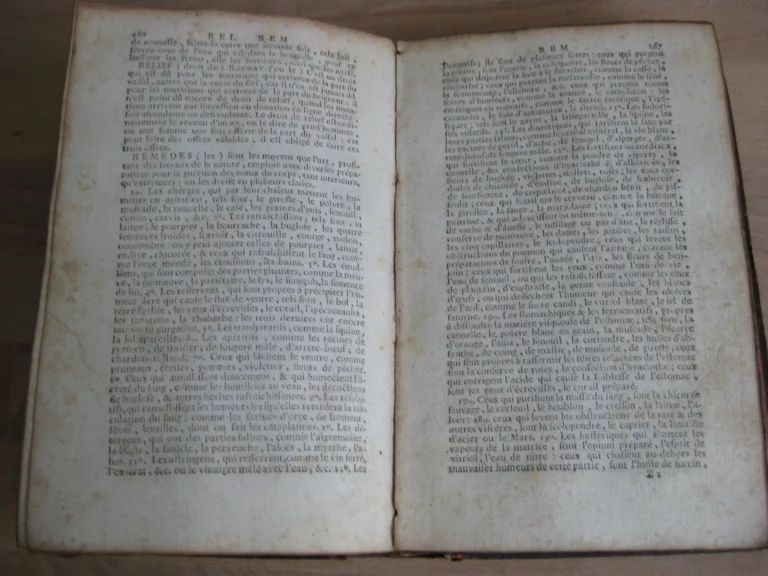 REL REM
de nouvelle, faites-la cuire une seconde fois, cela fait,
servez-vous de l'eau qui est dans la
RELIEF (droit de)
qui est dû pour les mutations qui arrivent de la part du
vassal, autres que la vente du fief, car il n'en est pas dû
pour les mutations qui arrivent de la part du Seigneur: il
n'est point dû encore de droit de relief, quand les muta-
tions arrivent par succession ou donation en ligne directe,
soit ascendante ou descendante. Le droit de relief est ordi-
nairement le revenu d'un an, ou le dire de prud'hommes,
ou une somme une fois offerte de la part du vassal; car
pour faire des offres valables, il est obligé de faire ces
trois offres.
REMEDES (les) sont les moyens que l'art, profi-
tant des secours de la nature, emploie avec diverses prépa-
rations pour la guérison des maux du corps, tant intérieurs,
qu'extérieurs: on les divise en plusieurs classes.
1°. Les altérans, qui par leur chaleur mettent les hu-
meurs en agitation, tels sont, le girofle, le poivre, la
muscade, la cannelle, le café, les graines d'anis, fenouil,
cumin, cervis, &c. 2°. Les rafraîchissans, tels sont, la
laitue, le pourpier, la bourrache, la buglose, les quatre
semences froides, savoir, la citrouille, courge, melon,
concombre: on y peut ajouter celles de pourpier, laitue,
endive, chicorée, & ceux qui rafraîchissent le sang, com-
me l'orge mondé, les émulsions, les bains. 3°. Les émol-
liens, qui sont composés des parties gluantes, comme la mau-
ve, la guimauve, la pariétaire, le lys, le seneçon, la semence
de lin. 4°. Les resserrans, qui sont propres à précipiter l'hu-
meur âcre qui cause le flux de ventre; tels sont, le bol, la
terre sigillée, les yeux d'écrevisses, le corail, l'ipecacuanha,
les tamarins, la rhubarbe: les trois derniers ont encore
une vertu purgative. 5°. Les transpiratifs, comme la squine,
la salsepareille. 6°. Les apéritifs, comme les racines de
gramen, de fraisier, de fougere mâle, d'arrete-bœuf, de
chardon-rolland. 7°. Ceux qui lâchent le ventre, comme
pruneaux, cerises, pommes, violettes, fleurs de pêcher.
8°. Ceux qui amollissent doucement, & qui humectent l'â-
creté du sang, comme les bouillons au veau, les décoctions
de buglose, & autres herbes rafraîchissantes. 9°. Les résolu-
tifs, qui ramollissent les humeurs lorsqu'elles retardent la cir-
culation du sang; comme les farines d'orge, de froment,
féves, lentilles, dont on fait les cataplasmes. 10. Les dé-
tersifs, qui ont des parties salines, comme l'aigremoine,
la bugle, la sanicle, la pervenche, l'aloès, la myrrhe, l'a-
lun. 11°. Les astringens, qui resserrent, comme le vin ferré,
l'oxicrat, &c. ou le vinaigre mêlé avec l'eau, &c. 12°. Les
REM 267
purgatifs; ils sont de plusieurs sortes: ceux qui purgent
la pituite, comme l'agaric, la les fleurs de pêches,
ceux qui purgent la bile comme la casse, la
rhubarbe; ceux qui purgent la mélancolie, comme le séné,
la scammonée, l'ellébore, &c. ceux qui purgent toutes
sortes d'humeurs, comme la manne, le catholicon: les
émétiques ou vomitifs, comme le tartre émétique, l'ipé-
cacuanha, le foie d'antimoine, le vitriol. 13. Les sudorifi-
ques; tels sont le gayac, la salsepareille, la squine, les
14°. Les diurétiques, qui purifient le sang par
leurs parties salines, comme le cristal minéral, le vin blanc,
les racines de persil, d'ache, de fenouil, d'asperges, d'ar-
rête-bœuf, de fougere mâle. 15°. Les fortifians ou cordiaux,
qui fortifient le cœur, comme la poudre de viperes, la
cannelle, les confections d'hyacinthe & d'alkermès, les
fleurs de buglose, violettes, œillets, roses; les eaux cor-
diales de chicorée, d'endive, de buglose, de scabieuse,
de scorsonere, de coquelicot, de chardon bénit, de pis-
senlit; ceux qui fortifient le cerveau, comme la bétoine,
la giroflée, la sauge, la marjolaine; ceux qui fortifient la
poitrine, & qui adoucissent ou même-tems, comme le lait
de vache & d'ânesse, le tussilage ou pas d'âne, la réglisse,
conserve de guimauve, les dattes, les jujubes, les raisins,
les cinq capillaires, le scolopendre; ceux qui levent les
obstructions du poumon qui causent l'asthme, comme les
préparations de soufre, l'aunée, l'iris, les fleurs de ben-
join; ceux qui fortifient les yeux, comme l'eau-de-vie,
l'eau de fenouil, ou qui les rafraîchissent, comme les eaux
de plantain, d'euphraise, la petite consoude, les blancs
d'œufs, ou qui dessechent l'humeur qui cause les ulcères
de l'œil, comme le sucre candi, le vitriol blanc, le sel de
saturne. 15°. Les stomachiques & les fermentatifs, propres
à dissoudre la matiere visqueuse de l'estomac; tels sont, la
cannelle, le poivre blanc en grain, la muscade, l'écorce
d'orange, l'anis, le fenouil, la coriandre, les huiles d'ab-
synthe, de coing, de mastic, de muscade, de girofle; ceux
qui sont propres à raffermir les fibres relâchées de l'estomac
sont la conserve de roses, la confection d'hyacinthe; ceux
qui corrigent l'acide qui cause la foiblesse de l'estomac,
sont les yeux d'écrevisses, le corail préparé.
17°. Ceux qui purifient la masse du sang, sont la chicorée
sauvage, le cerfeuil, le houblon, le cresson, la laitue, l'a-
loès. 18°. ceux qui levent les obstructions de la rate & des
autres visceres, sont la scolopendre, le caprier, la limaille
d'acier ou le Mars. 19°. Les hystériques qui abattent les
vapeurs de la matrice, sont l'opium préparé, l'esprit de
vitriol, l'eau de nitre: ceux qui chassent au-dehors les
mauvaises humeurs de cette partie, sont l'huile de succin,
Z 2